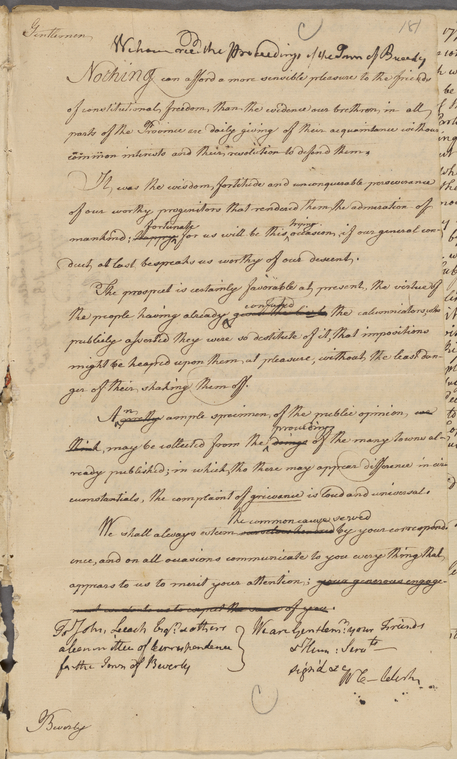 Gentlemen
181
We have rec'd the Proceedings of the Town of Beverly
Nothing can afford a more sensible pleasure to the friends
of constitutional freedom, than the evidence our brethren, in all
parts of the Province are daily giving of their acquaintance with our
common interests and their resolution to defend them.
It, was the wisdom, fortitude and unconquerable perseverance
of our worthy progenitors that rendered them the admiration of
fortunate
trying
mankind; happy for us will be this occasion, if our general con-
duct, at last bespeaks us worthy of our descent.
The prospect is certainly favorable at present, the virtue of
confuted
the people having already the calumniators who
publicly asserted they were so destitute of it, that impositions
might be heaped upon them, at pleasure, without, the least dan-
ger of their shaking them off.
An pretty ample specimen, of the public opinion, we
proceedings
think, may be collected from the doings of the many towns al-
ready published; in which, tho there may appear difference in cir-
cumstantials, the complaint of grievance is loud and universal.
the common cause served
We shall always esteem by your correspond
ence, and on all occasions communicate to you every thing that
appears to us to merit your attention; your generous engage-
of you.
To John Leach Esqr. & others
a Committee of Correspondence
for the Town of Beverly
We are Gentlemn. your Friends
& Hum. Servts
sign'd &c
W C Clerk
Beverly